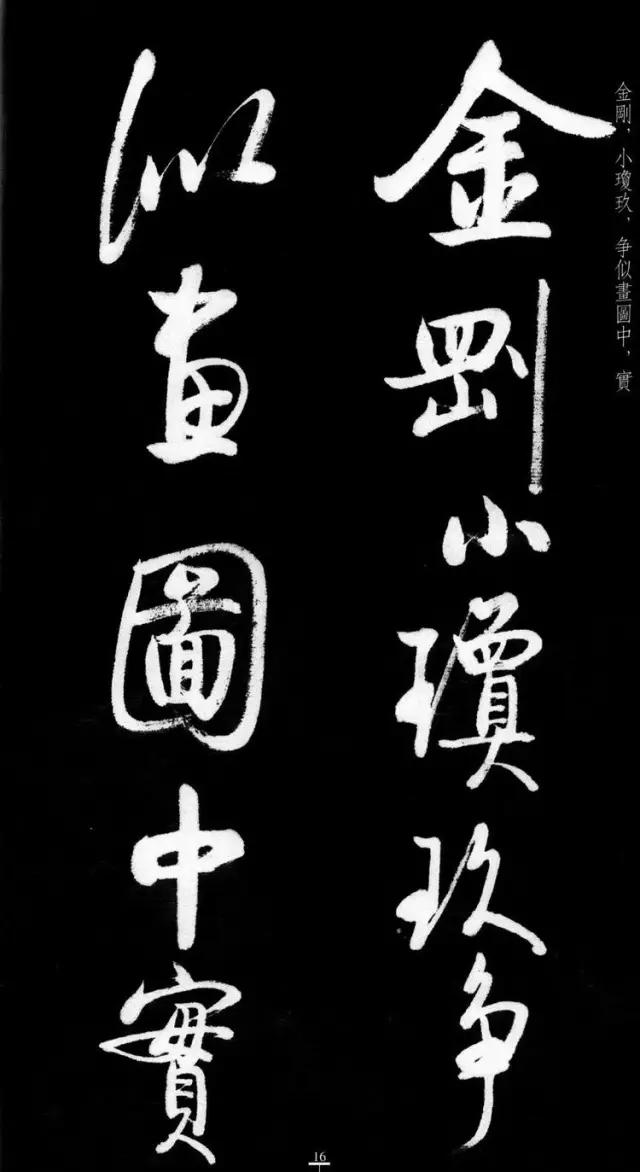 金剛，小瓊玖，爭似畫圖中，實
金剛小瓊玖爭
似畫圖中實
16